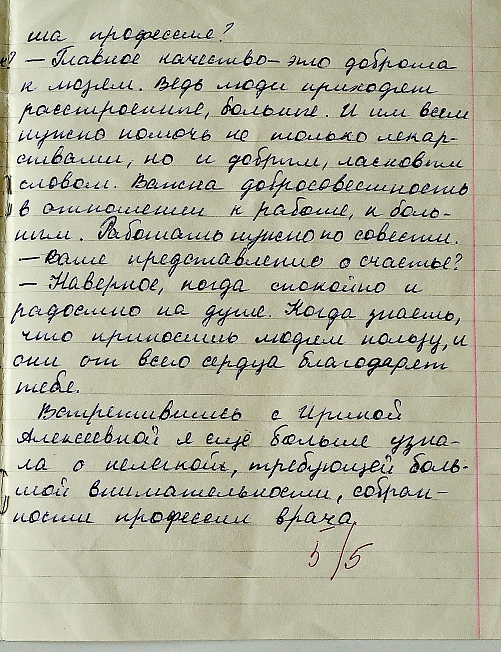 ша профессия?
— Главное качество — это доброта
к людям. Ведь люди приходят
расстроенные, больные. И им всем
нужно помочь не только лекар-
ствами, но и добрым, ласковым
словом. Важна добросовестность
в отношении к работе, к боль-
ным. Работать нужно по совести.
— Ваше представление о счастье?
— Наверное, когда спокойно и
радостно на душе. Когда знаешь,
что приносишь людям пользу, и
они от всего сердца благодарят
тебя.
Встретившись с Ириной
Алексеевной я ещё больше узна-
ла о нелегкой, требующей боль-
шой внимательности, собран-
ности профессии врача
5/5